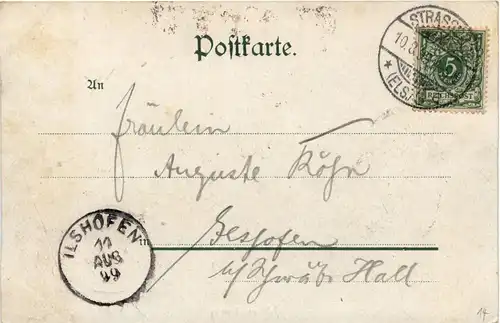 Postkarte.
STRASSB
10.8
(ELS.)
5
REICHSPOST
An
Fräulein
Auguste Köhn
in
b/ Schwäb. Hall
ILSHOFEN
11
AUG
99
14